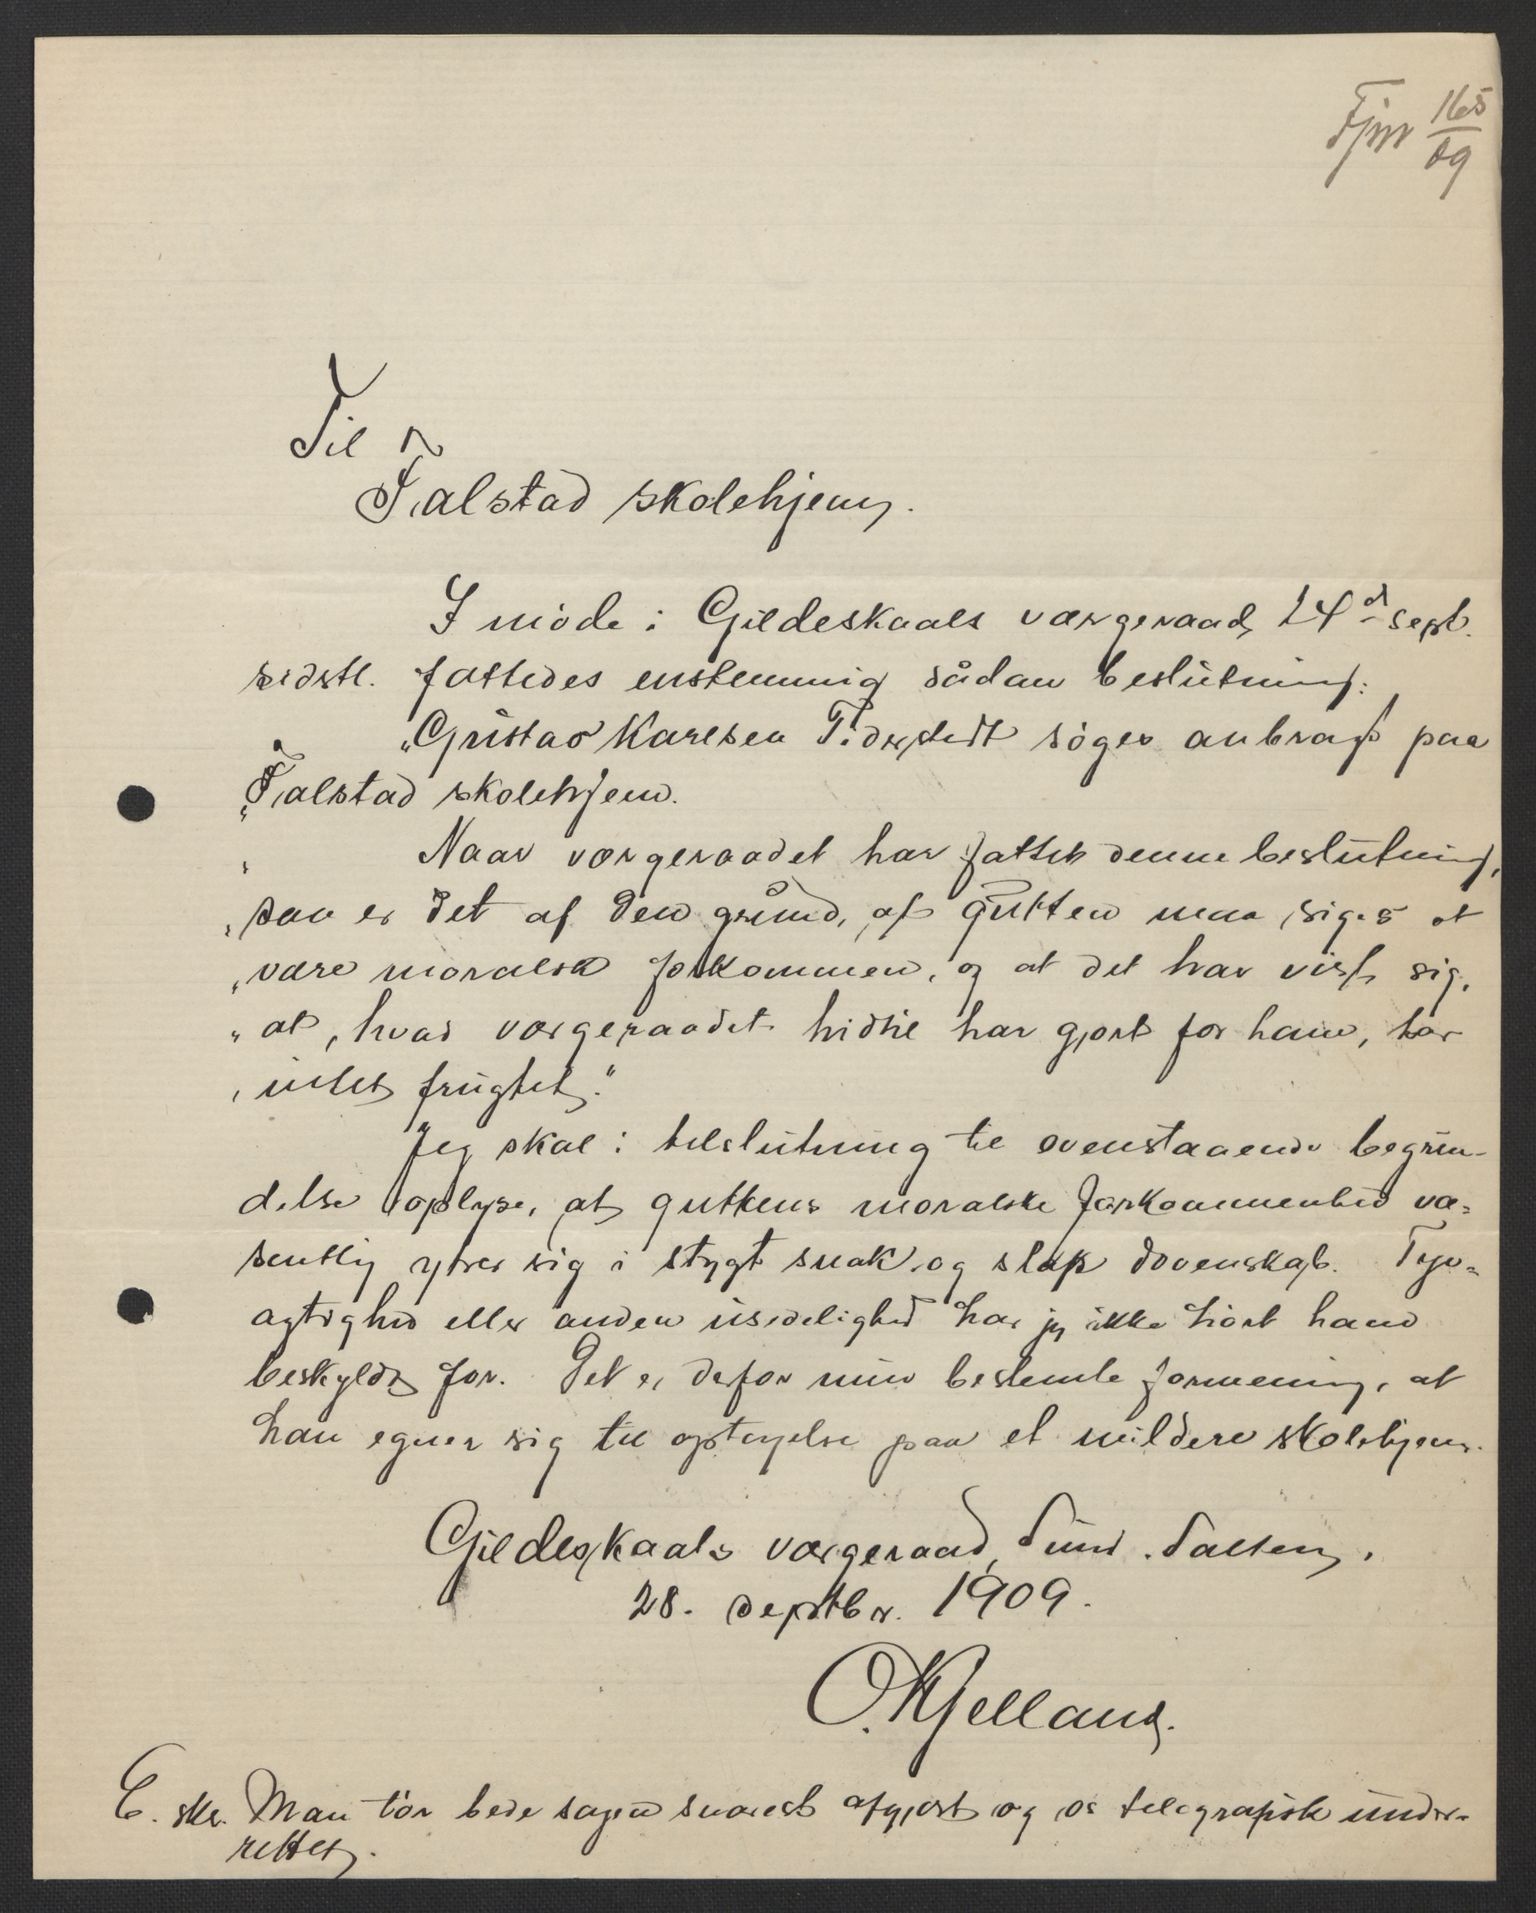 Fjnr 165/09
Til
Falstad skolehjem.
I møde i Gildeskaals værgeraad 24d sept.
sidstl. fattedes enstemmig sådan beslutning:
„Gustav Karlsen Tiderstedt søges anbragt paa
„Falstad skolehjem.
„ Naar værgeraadet har fattet denne beslutning,
„saa er det af den grund, at gutten maa siges at
„være moralsk forkommen, og at det har vist sig,
„at, hvad værgeraadet hidtil har gjort for ham, har
„intet frugtet."
Jeg skal i tilslutning til ovenstaaende begrun-
delse oplyse, at guttens moralske forkommenhed væ-
sentlig ytrer sig i stygt snak og slap dovenskab. Tyv-
agtighed eller anden usedelighed har jeg ikke hørt ham
beskyldt for. Det er derfor min bestemte formening, at
han egner sig til optagelse paa et mildere skolehjem.
Gildeskaals værgeraad, Sund. Salten,
28. septbr. 1909.
O. Kjelland.
E. skr. Man tør bede sagen snarest afgjort og os telegrafisk under-
rettet.